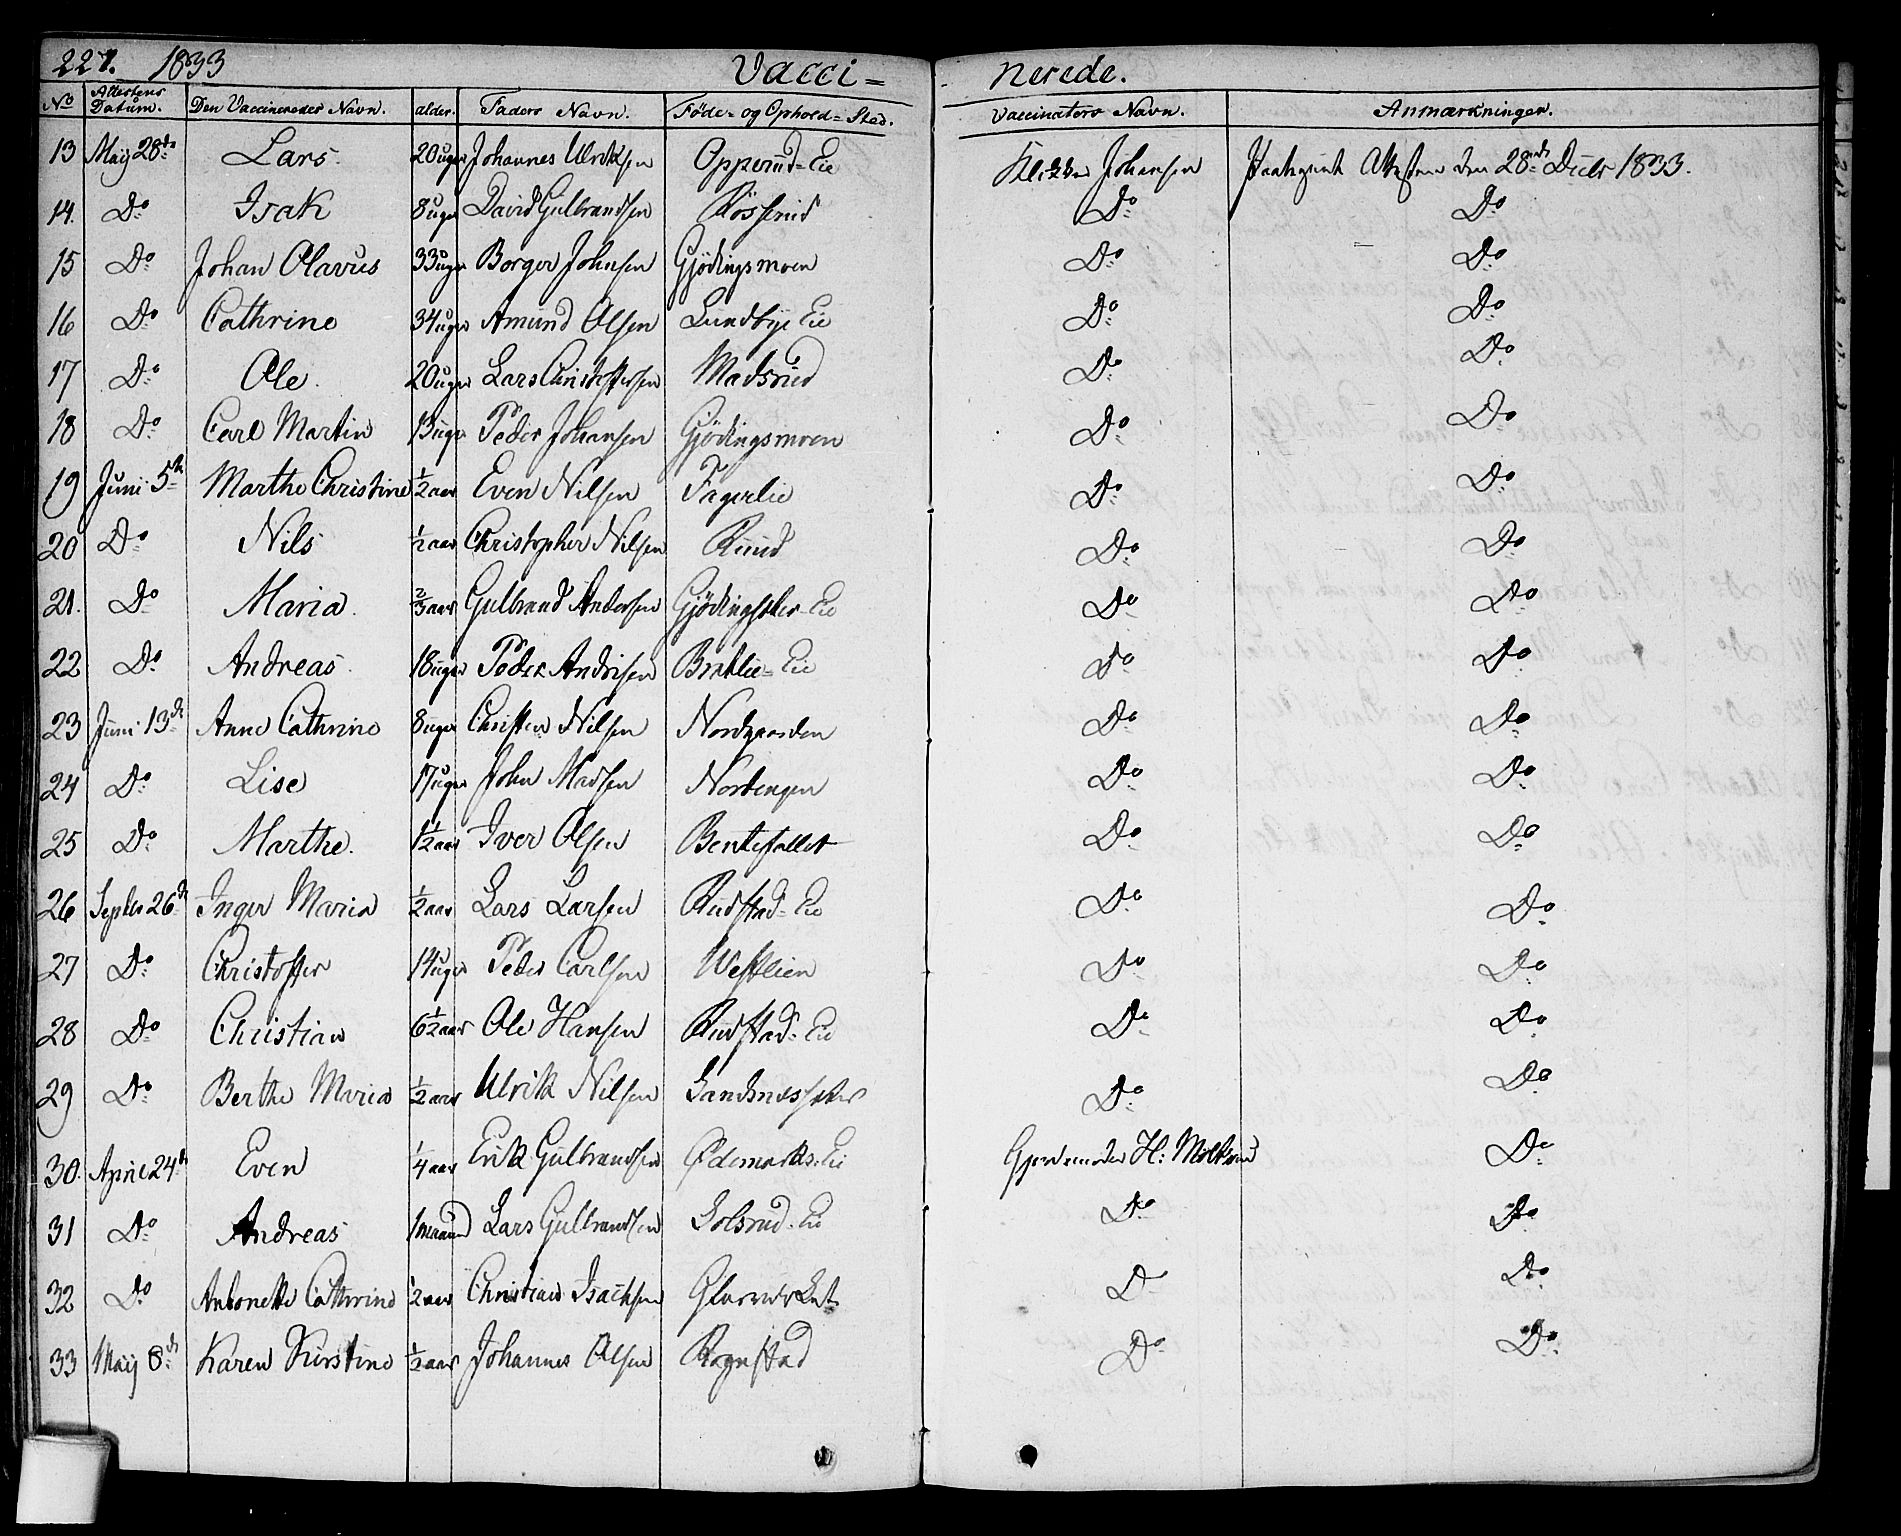 221. 1833 Vacci= nerede.
No Attestens Datum. Den Vaccineredes Navn. alder. Faders Navn. Føde- og Ophold=Sted. Vaccinators Navn. Anmærkninger.
13 Maij 28de Lars. 20 uger Johannes Ulriksen Opperud=Eie Klokker Johansen Attesten den 28de Decbr 1833.
14. Do Isak 8 uger David Gulbrandsen Rösserud Do Do
15 Do Johan Olavus 33 uger Borger Johnsen Gjödingsmoen Do Do
16 Do Cathrine 34 uger Amund Olsen Lundbye Eie Do Do
17 Do Ole. 20 uger Lars Christoffersen Madsrud Do Do
18 Do Carl Martin 13 uger Peder Johansen Gjödingsmoen Do Do
19 Juni 5te Marthe Christine 1/2 aar Even Nilsen Fagerlie Do Do
20 Do Nils 1/2 aar Christopher Nilsen Ruud Do Do
21. Do Maria. 2/3 aar Gulbrand Andersen Eie Do Do
22 Do Andreas. 18 uger Peder Andrisen Bratlie=Eie Do Do
23 Juni 13de Anne Cathrine 8 uger Christen Nilsen Nordgaarden Do Do
24 Do Lise 17 uger John Madsen Nordengen Do Do
25 Do Marthe. 1 1/2 aar Iver Olsen Bentefallet Do Do
26 Septbr 26de Inger Maria 1/2 aar Lars Larsen Rudstad=Eie Do Do
27 Do Christoffer 14 uger Peder Carlsen Westlien Do Do
28 Do Christian 6 1/2 aar Ole Hansen Rudstad=Eie Do Do
29 Do Berthe Maria 1/2 aar Ulrik Nilsen Do Do
30. April 24de Even 1/4 aar Erik Gulbrandsen Ødemarks=Eie Gjordemoder H: Do
31 Do Andreas 1 maaned Lars Gulbrandsen Solsrud=Eie Do Do
32 Do Antonette Cathrine 1/2 aar Christian Isachsen Glasverket Do Do
33 Maij 8de Karen Kirstine 1/2 aar Johannes Olsen Rognstad Do Do